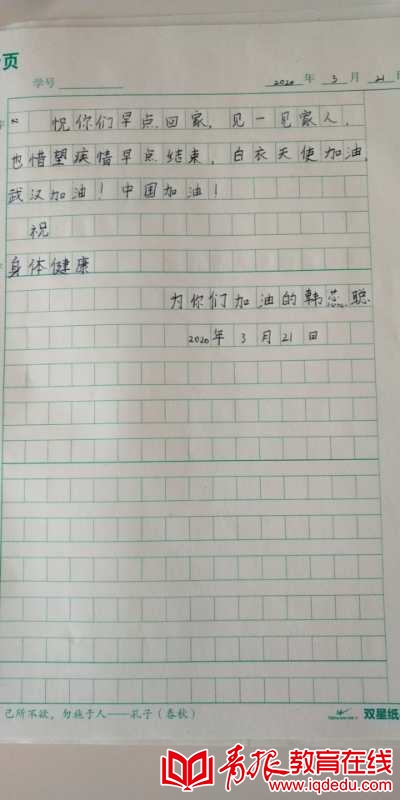 页
学号
2020 年 3 月 21 日
悦你们早点回家，见一见家人，
也惜望疾情早点结束，白衣天使加油，
武汉加油！中国加油！
祝
身体健康
为你们加油的韩蕊聪
2020年 3 月 21 日
己所不欲，勿施于人——孔子（春秋）
双星纸
青报教育在线
www.iqdedu.com